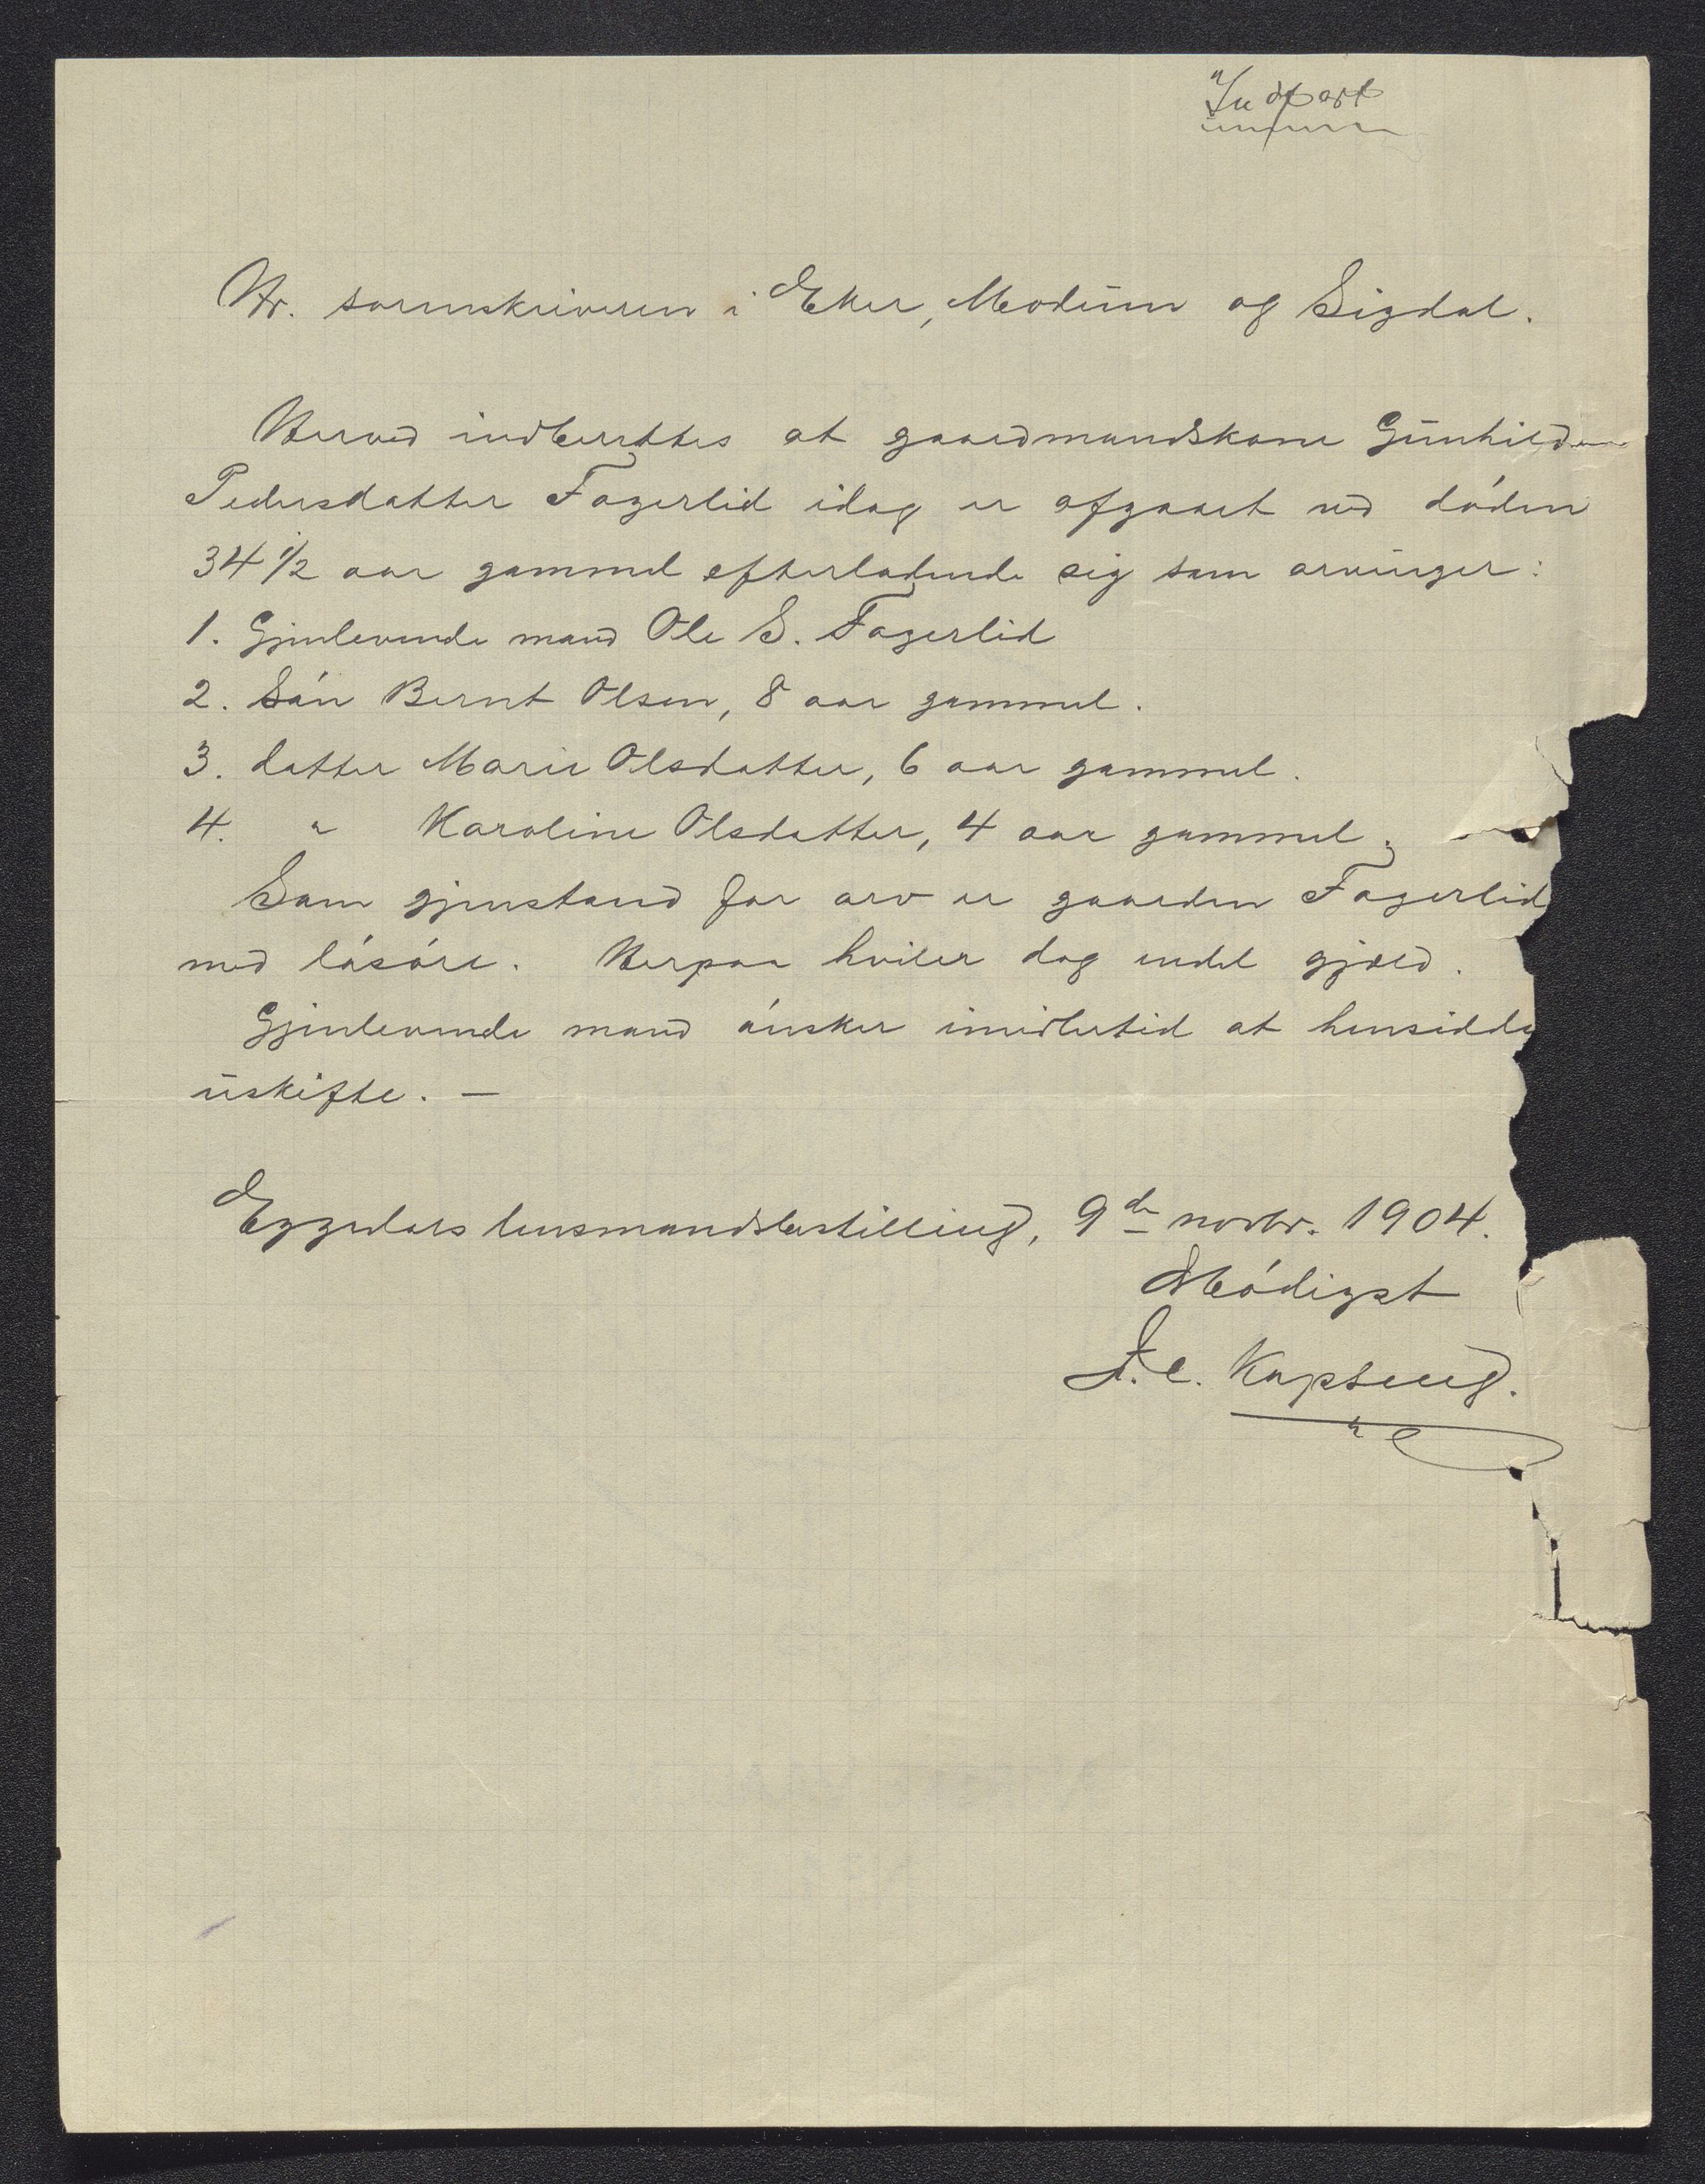 Hr. sorenskriveren i Eker, Modum og Sigdal.
Herved indberettes at gaardmandskone Gunhild
Pedersdatter Fagerlid idag er afgaaet ved døden
34 1/2 aar gammel efterladende sig som arvinger:
1. Gjenlevende mand Ole S. Fagerlid
2. Søn Bernt Olsen, 8 aar gammel.
3. datter Marie Olsdatter, 6 aar gammel.
4. " Karoline Olsdatter, 4 aar gammel.
Som gjenstand for arv er gaarden Fagerlid
med løsøre. Herpaa hviler dog endel gjæld.
Gjenlevende mand ønsker imidlertid at hensidde
uskifte. —
Eggedals lensmandsbestilling, 9de novbr. 1904.
Ærbødigst